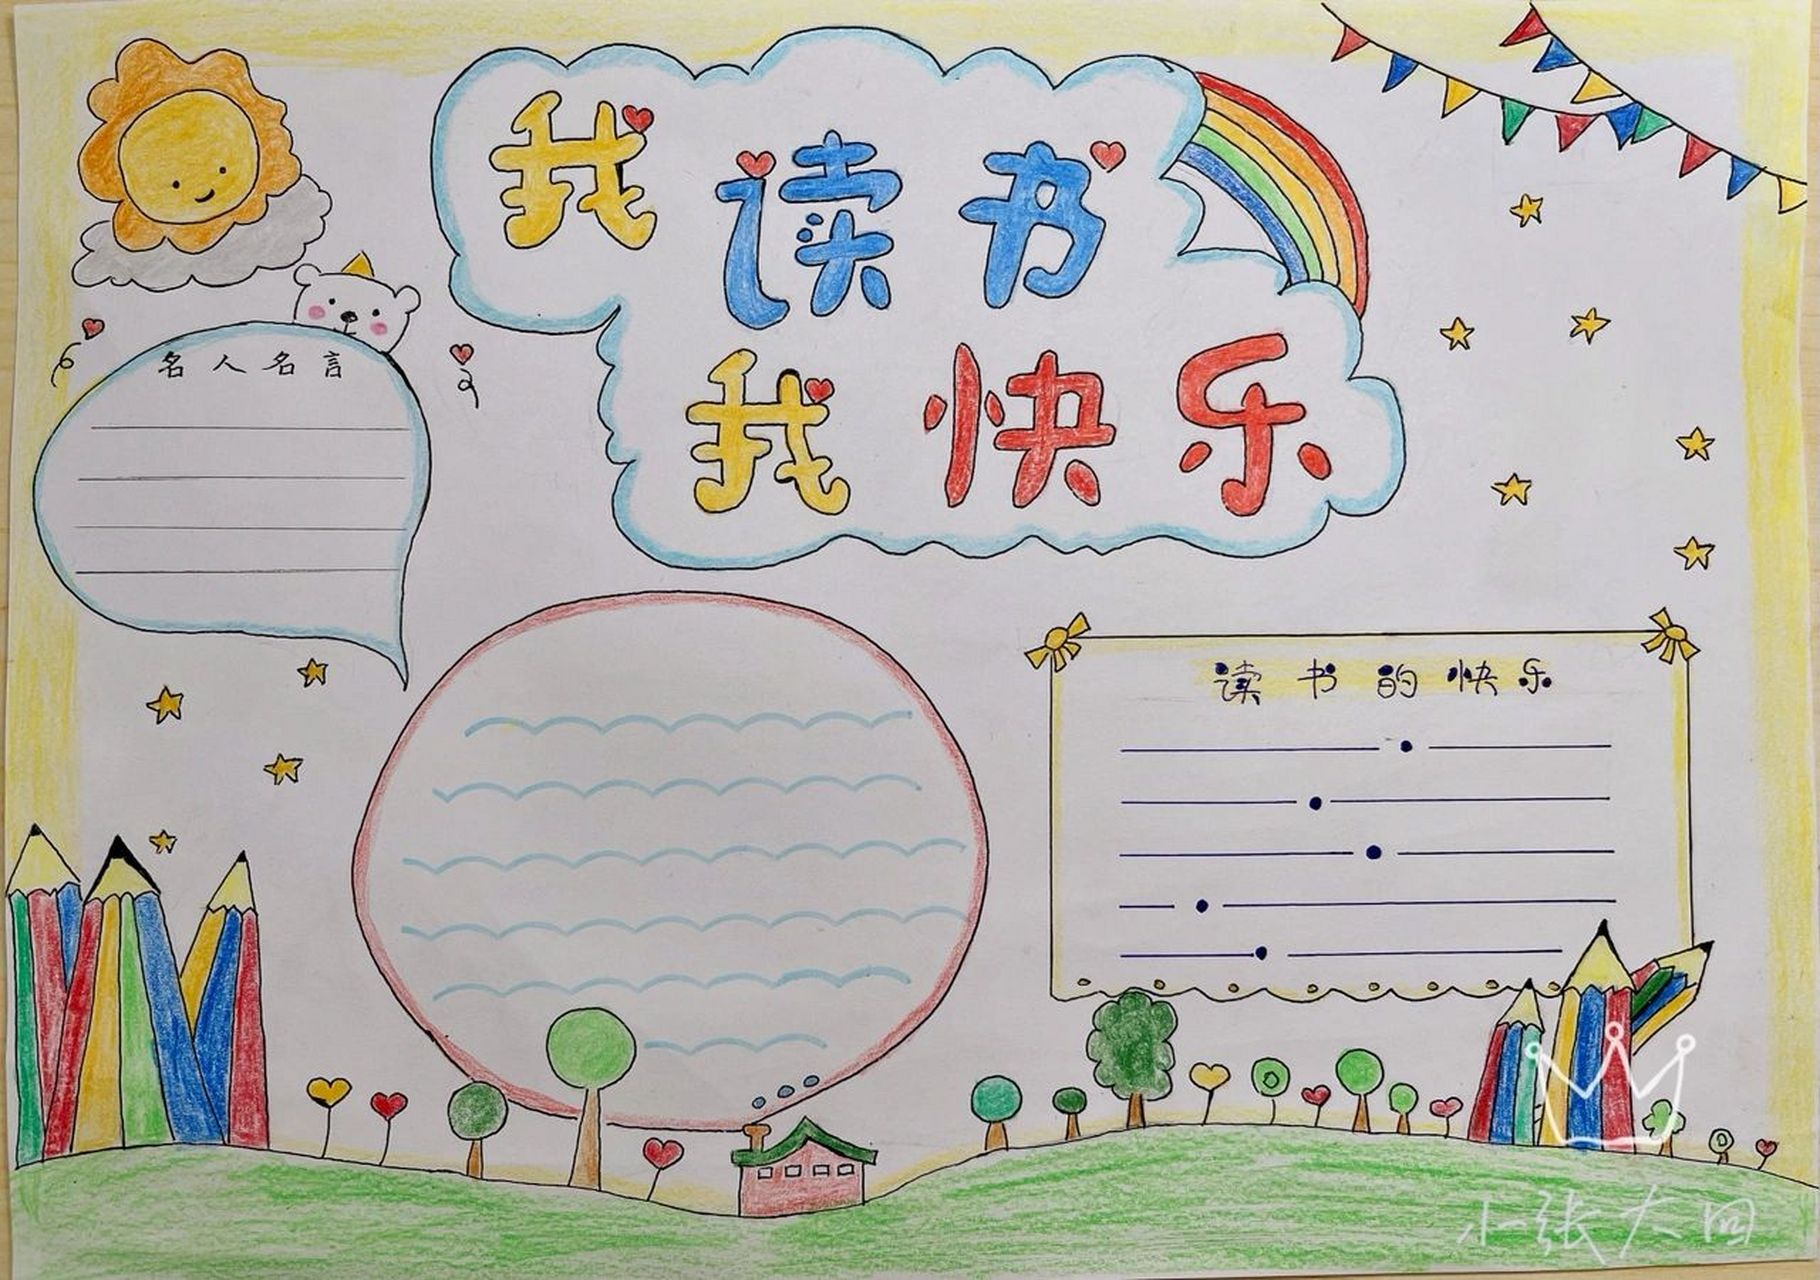 我读书
我快乐
名人名言
读书的快乐
小张大田